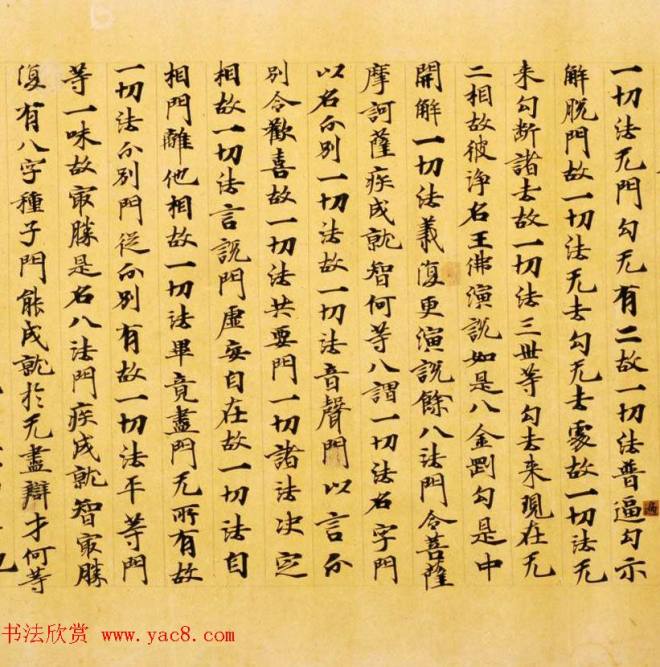 一切法无門勾无有二故一切法普逼勾示
解脱門故一切法无去勾无去處故一切法无
来勾断諸去故一切法三世等勾去来現在无
二相故彼淨名王佛演說如是八金剛勾是中
開解一切法義復更演說餘八法門令菩薩
摩訶薩疾成就智何等八謂一切法名字門
以名分別一切法故一切法音聲門以言分
別令歡喜故一切法共要門一切諸法决定
相故一切法言說門虛妄自在故一切法自
相門離他相故一切法畢竟盡門无所有故
一切法分別門從分別有故一切法平等門
等一味故最勝是名八法門疾成就智最勝
復有八字種子門能成就於无盡辯才何等
书法欣赏 www.yac8.com